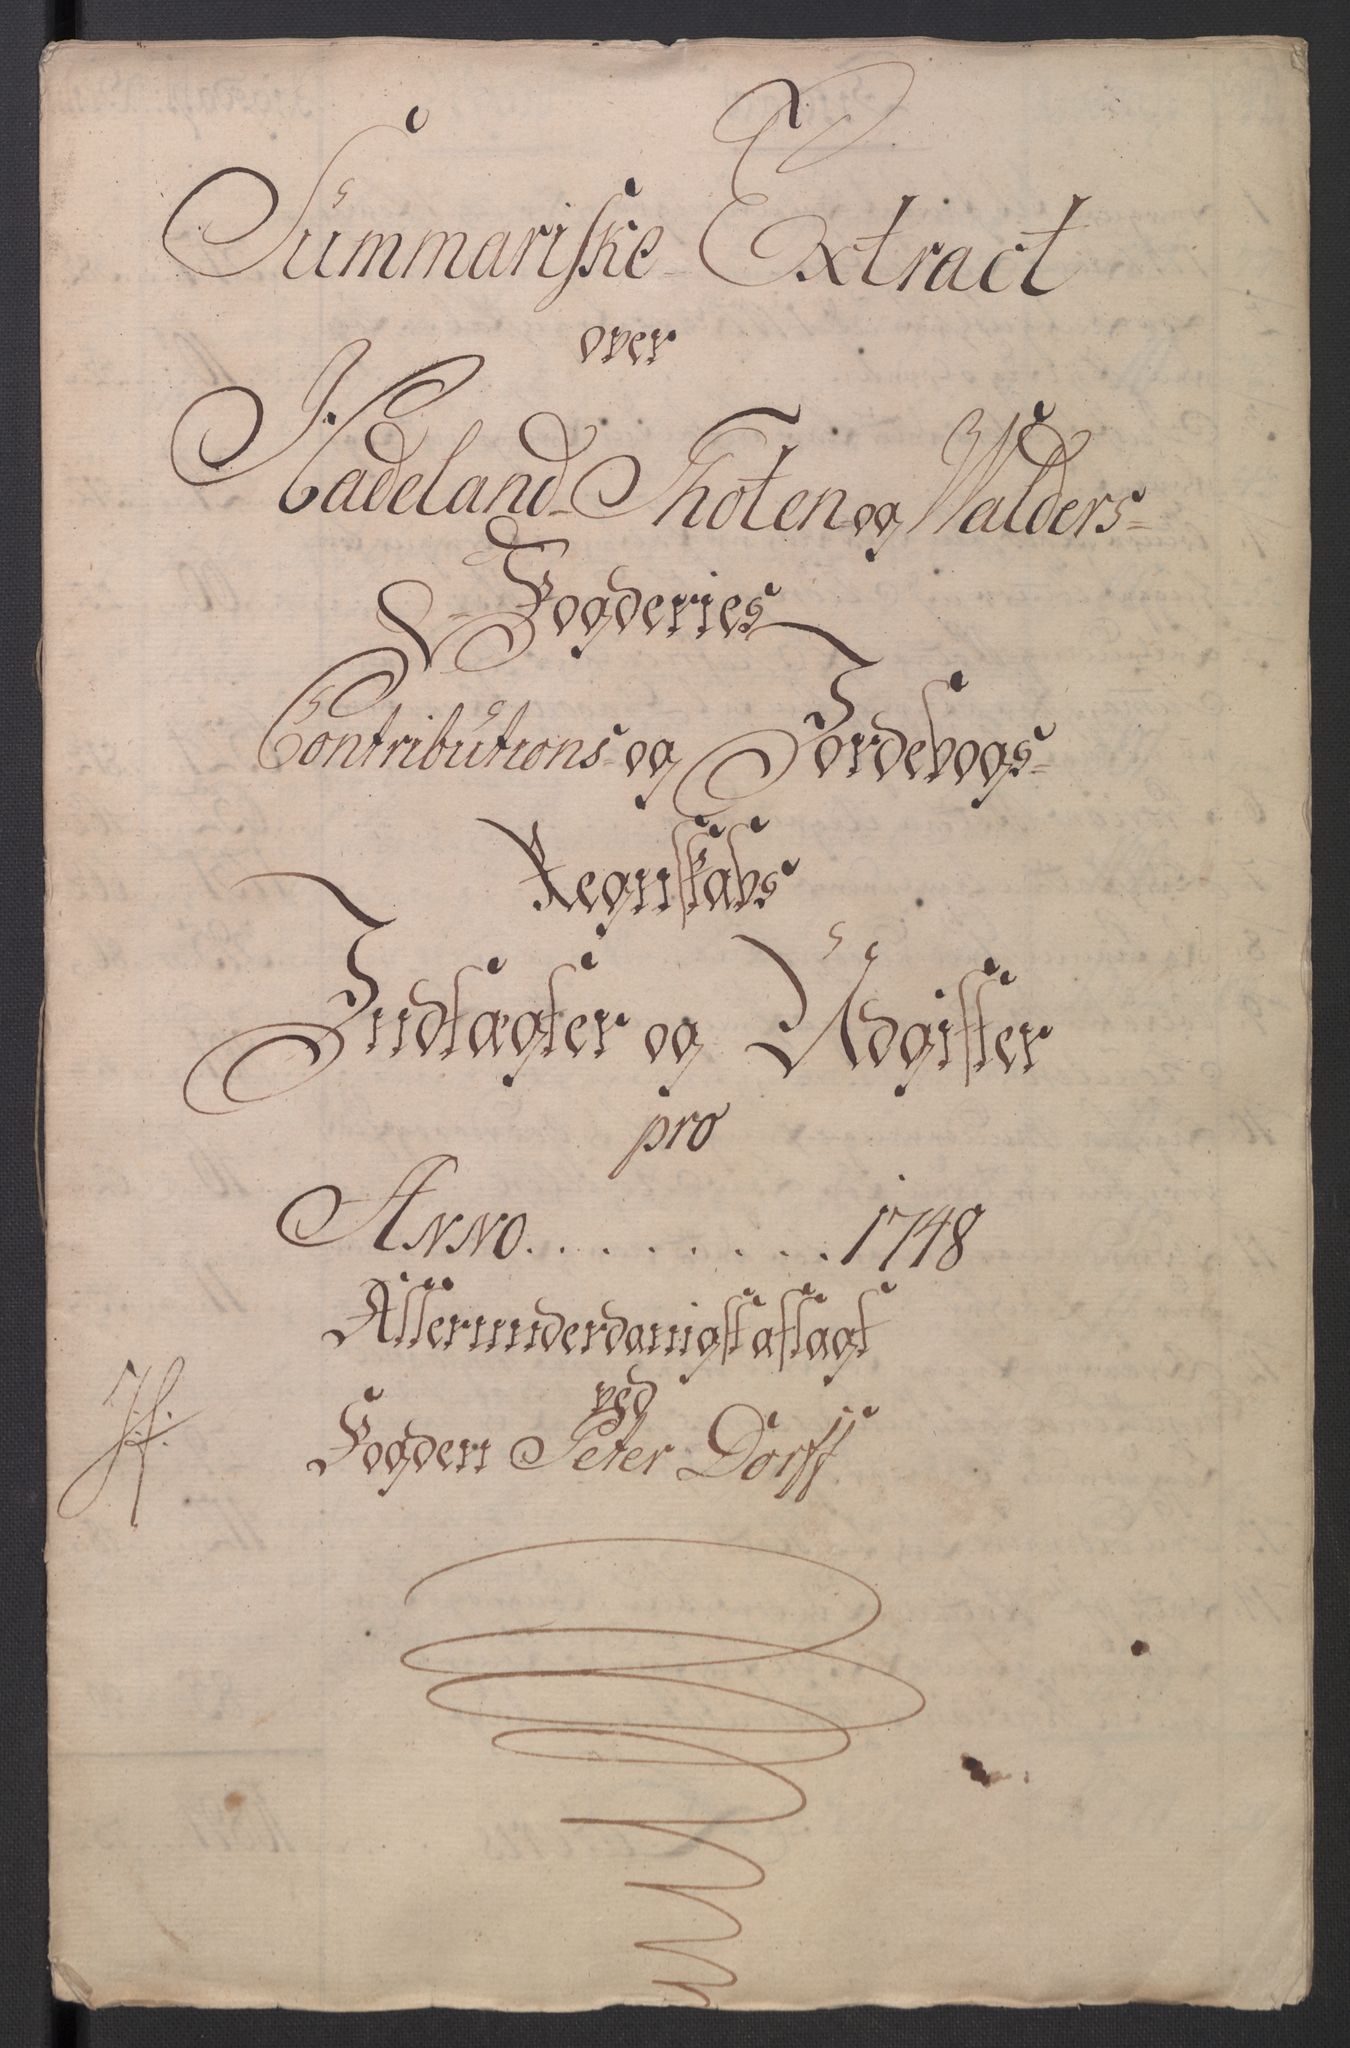 Summariske Extract
over
Hadeland Thoten og Walders
Fogderies
Contributions og Jordebogs
Regnskabs
Indtægter og Udgifter
pro
Anno . . . . . . . . . 1748
Allerunderdanigst aflagt
ved
Fogden Peter Dorff
H: